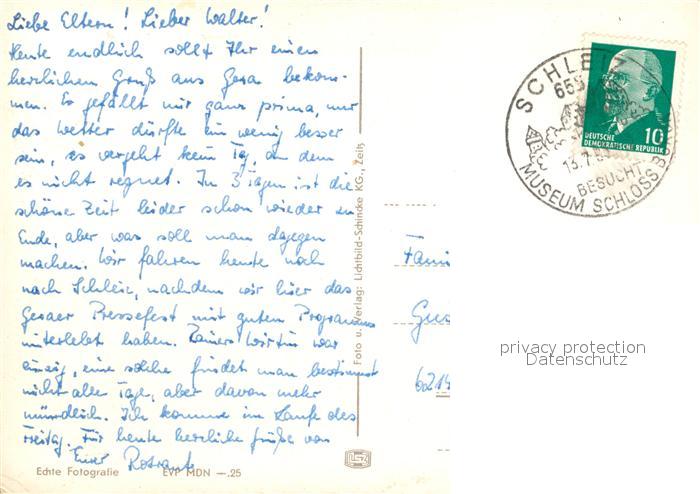 Liebe Eltern! Lieber Walter!
Heute endlich sollt Ihr einen
herzlichen Gruß aus Gera bekom-
men. Es gefällt mir ganz prima, nur
das Wetter dürfte ein wenig besser
sein, es vergeht kein Tag, an dem
es nicht regnet. In 3 Tagen ist die
schöne Zeit leider schon wieder zu
Ende, aber was soll man dagegen
machen. Wir fahren heute noch
nach Schleiz, nachdem wir hier das
Geraer Pressefest mit gutem Programm
miterlebt haben. Rainers Wirtin war
einzig, eine solche findet man bestimmt
nicht alle Tage, aber davon mehr
mündlich. Ich komme im Laufe des
Freitag. Für heute herzliche Grüße von
Eurer
Echte Fotografie EVP MDN —.25
Foto u. Verlag: Lichtbild-Schincke KG., Zeitz
SCHLEIZ
BESUCHT
MUSEUM SCHLOSS
DEUTSCHE
DEMOKRATISCHE REPUBLIK
10
Fami
privacy protection
Datenschutz